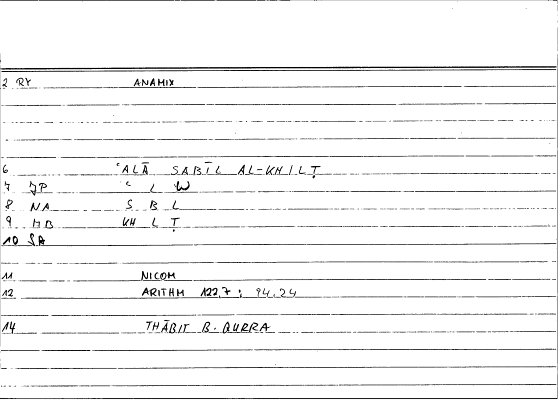 2 RY ANAMIX
6 ʿALĀ SABĪL AL-KHILṬ
7 JP ʿ L W
8 NA S B L
9 HB KH L Ṭ
10 SA
11 NICOM
12 ARITHM 122,7 : 94.24
14 THĀBIT B. QURRA